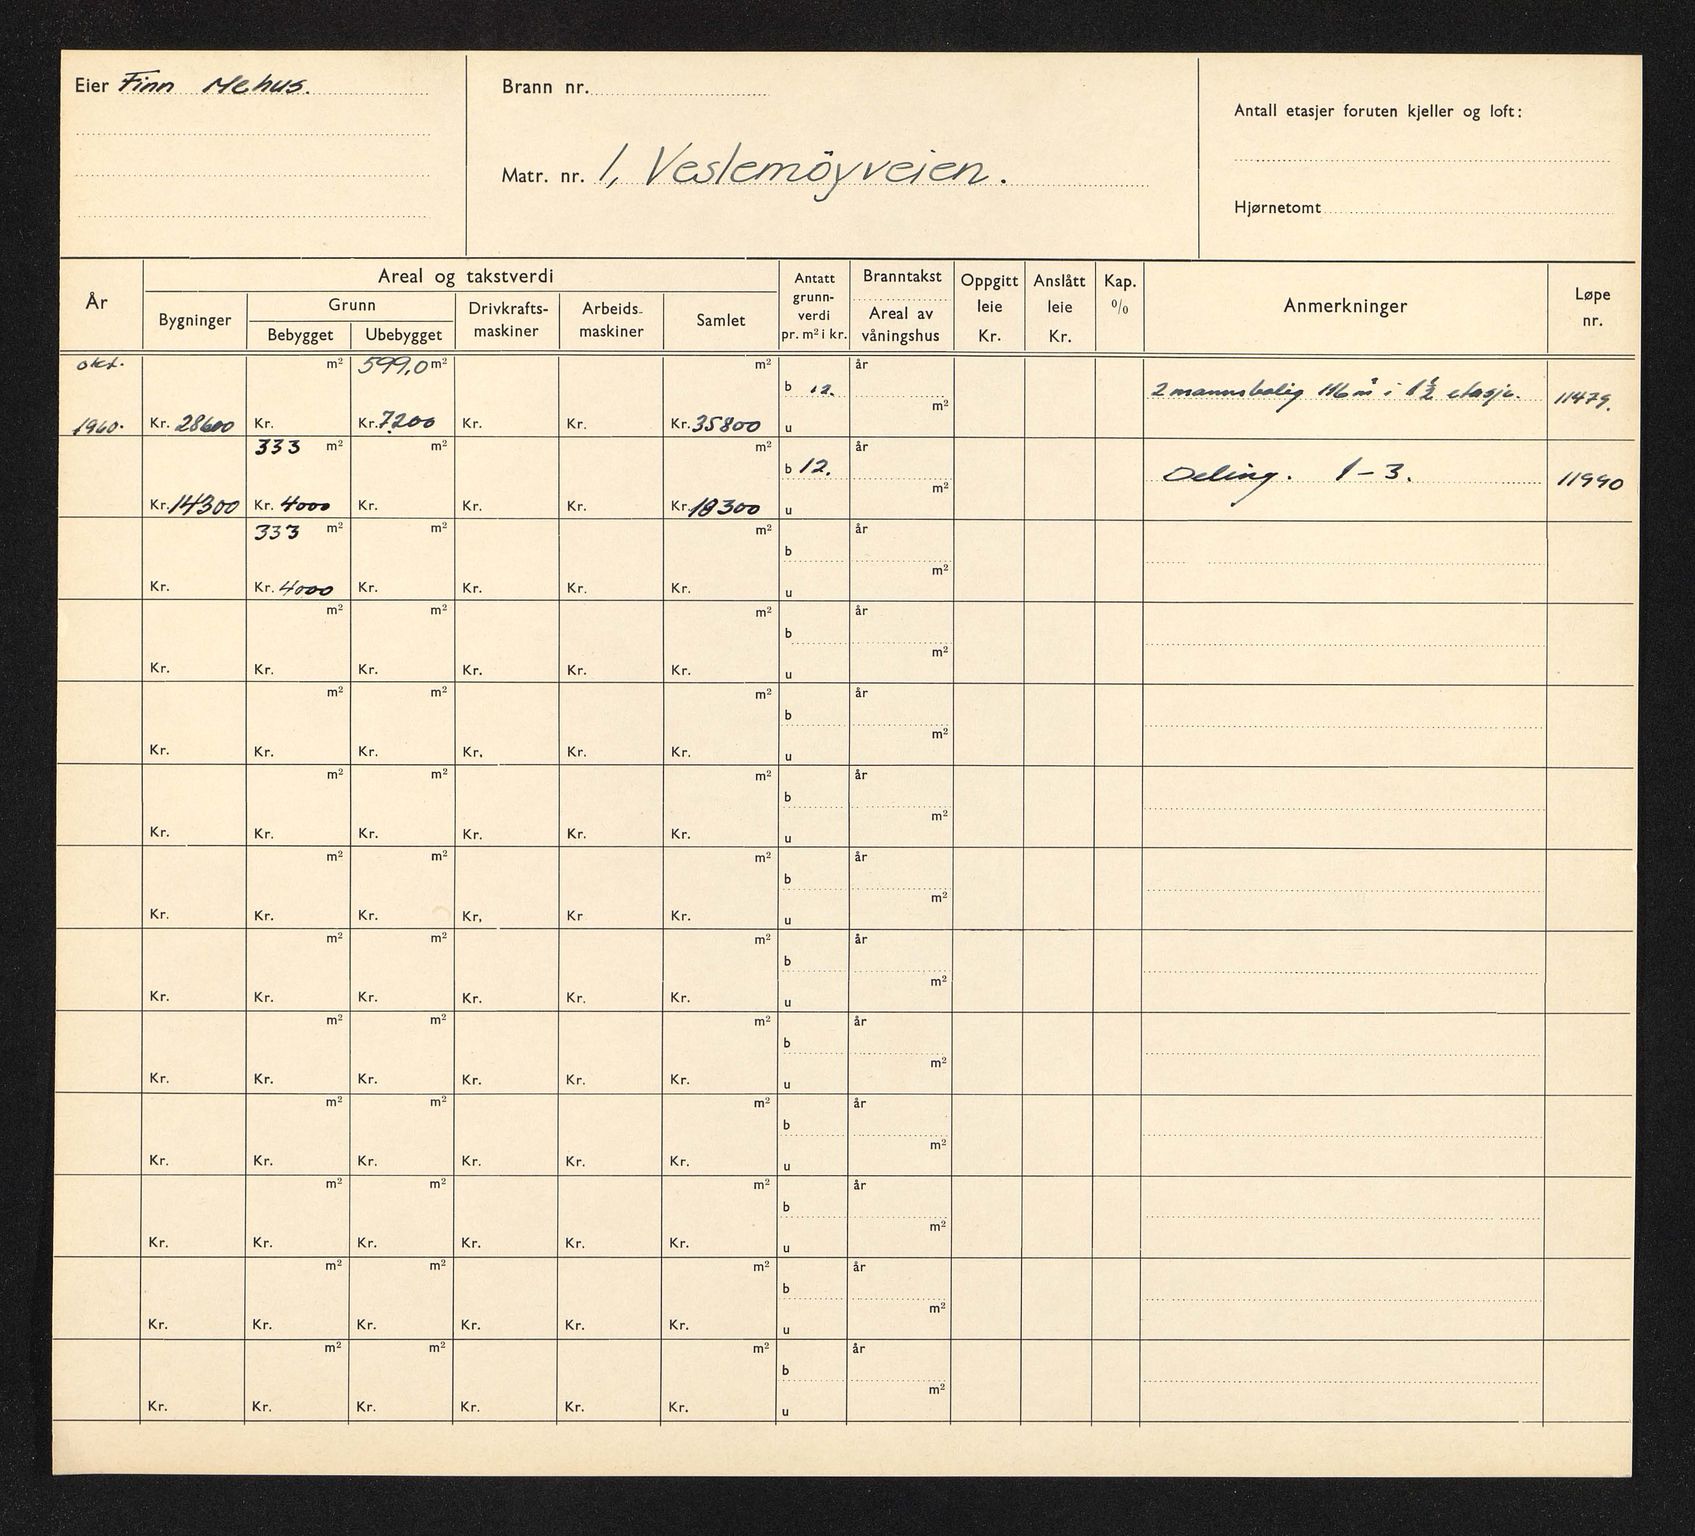 Eier Finn Mehus.
Brann nr.
Matr. nr. 1, Veslemöyveien.
Antall etasjer foruten kjeller og loft:
Hjørnetomt
År
Areal og takstverdi
Bygninger
Grunn
Bebygget Ubebygget
Drivkrafts-
maskiner
Arbeids-
maskiner
Samlet
Antatt
grunn-
verdi
pr. m² i kr.
Branntakst
Areal av
våningshus
Oppgitt
leie
Kr.
Anslått
leie
Kr.
Kap.
%
Anmerkninger
Løpe
nr.
okt. m² 599,0 m² m² år
b 12. m² 2 mannsbolig 116 m² i 1½ etasje. 11479.
1960. Kr. 28600 Kr. Kr. 7200 Kr. Kr. Kr. 35800 u
333 m² m² m² år
b 12. m² Deling. 1-3. 11990
Kr. 14300 Kr. 4000 Kr. Kr. Kr. Kr. 18300 u
333 m² m² m² år
b m²
Kr. Kr. 4000 Kr. Kr. Kr. Kr. u
m² m² m² år
b m²
Kr. Kr. Kr. Kr. Kr. Kr. u
m² m² m² år
b m²
Kr. Kr. Kr. Kr. Kr. Kr. u
m² m² m² år
b m²
Kr. Kr. Kr. Kr. Kr. Kr. u
m² m² m² år
b m²
Kr. Kr. Kr. Kr, Kr Kr. u
m² m² m² år
b m²
Kr. Kr. Kr. Kr. Kr. Kr. u
m² m² m² år
b m²
Kr. Kr. Kr. Kr. Kr. Kr. u
m² m² m² år
b m²
Kr. Kr. Kr. Kr. Kr. Kr. u
m² m² m² år
b m²
Kr. Kr. Kr. Kr. Kr. Kr. u
m² m² m² år
b m²
Kr. Kr. Kr. Kr. Kr. Kr. u
m² m² m² år
b m²
Kr. Kr. Kr. Kr. Kr. Kr. u